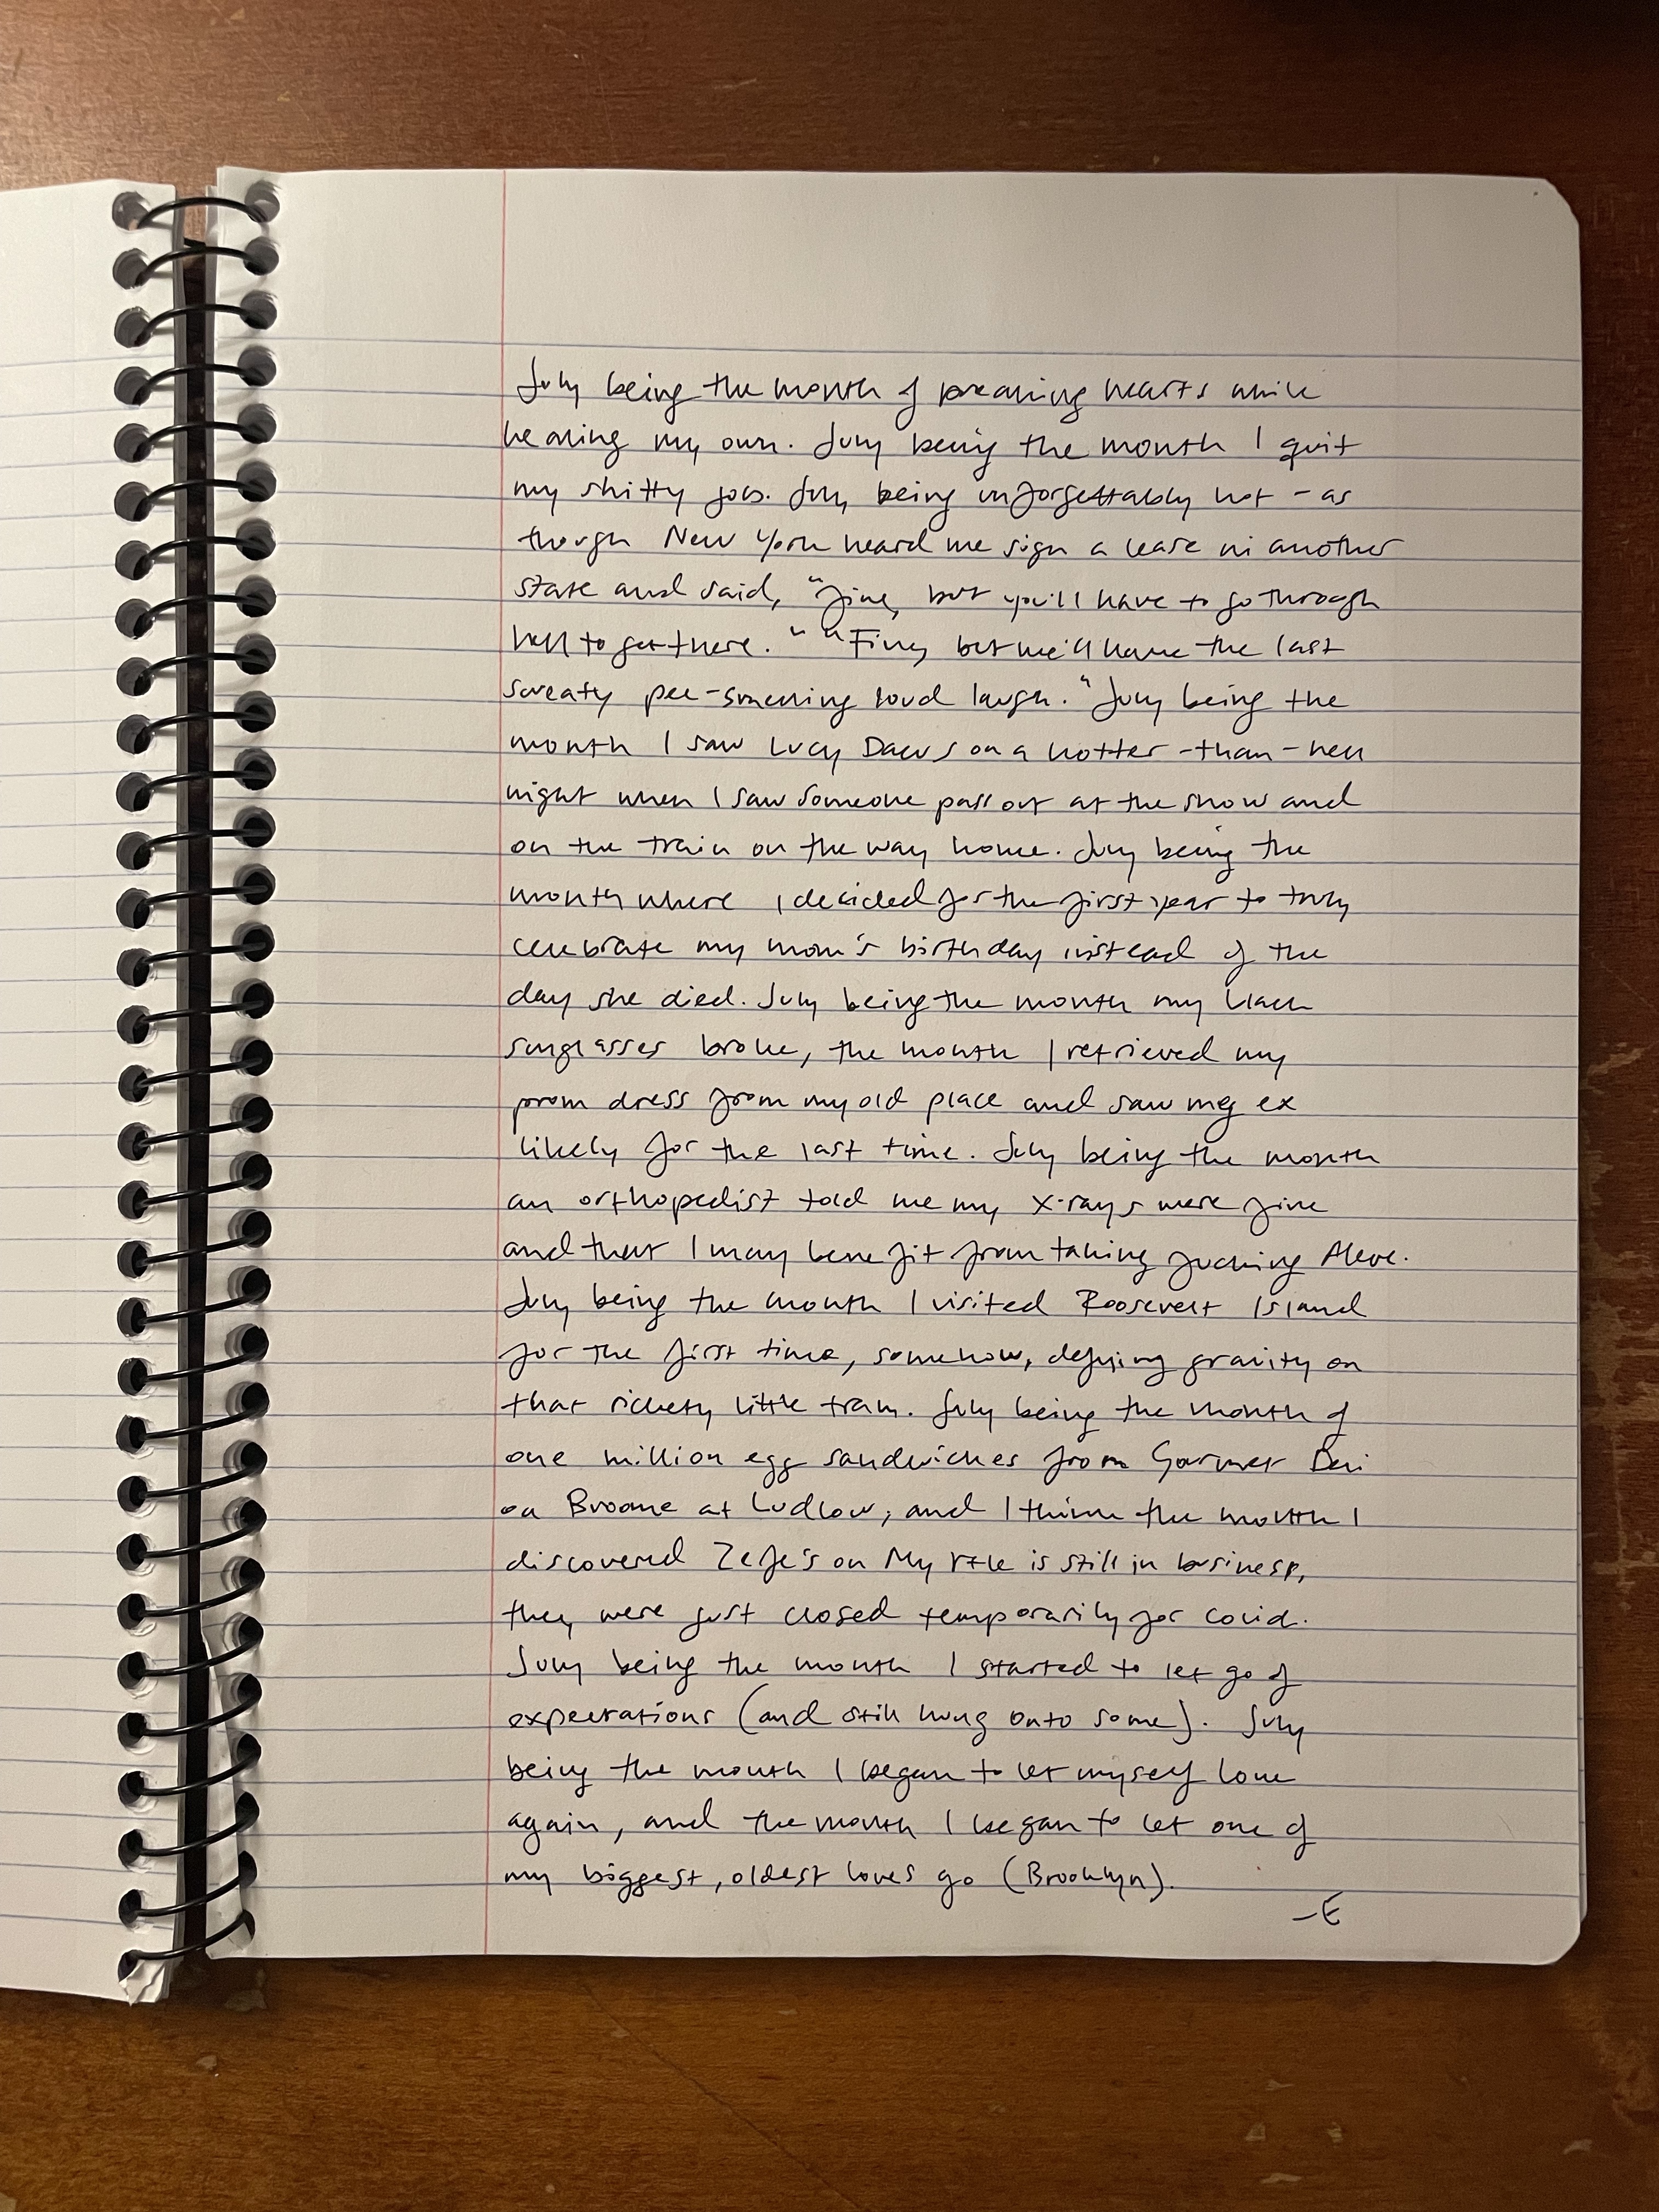 July being the month of breaking hearts while
healing my own. July being the month I quit
my shitty job. July being unforgettably hot - as
though New York heard me sign a lease in another
state and said, "fine, but you'll have to go through
hell to get there." "Fine, but we'll have the last
sweaty pee-smelling loud laugh." July being the
month I saw Lucy Dacus on a hotter-than-hell
night when I saw someone pass out at the show and
on the train on the way home. July being the
month where I decided for the first year to truly
celebrate my mom's birthday instead of the
day she died. July being the month my black
sunglasses broke, the month I retrieved my
prom dress from my old place and saw my ex
likely for the last time. July being the month
an orthopedist told me my X-rays were fine
and that I may benefit from taking fucking Aleve.
July being the month I visited Roosevelt Island
for the first time, somehow, defying gravity on
that rickety little tram. July being the month of
one million egg sandwiches from Gourmet Deli
on Broome at Ludlow, and I think the month I
discovered Zefe's on Myrtle is still in business,
they were just closed temporarily for covid.
July being the month I started to let go of
expectations (and still hung onto some). July
being the month I began to let myself love
again, and the month I began to let one of
my biggest, oldest loves go (Brooklyn).
-E